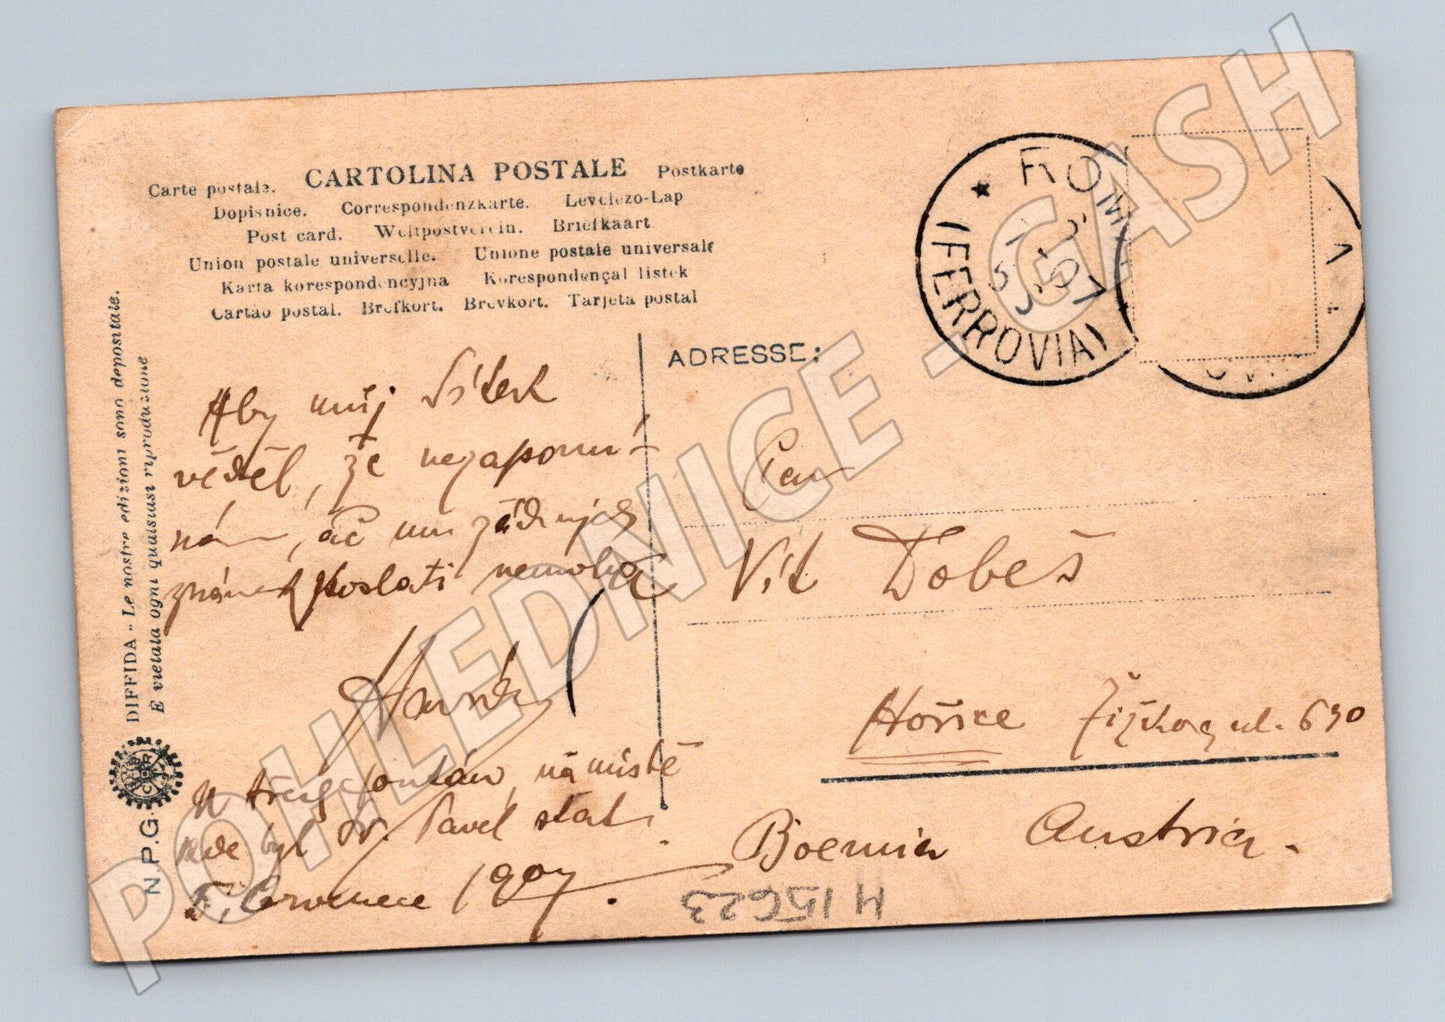 CARTOLINA POSTALE
Carte postale. Postkarte
Dopisnice. Correspondenzkarte. Levelezo-Lap
Post card. Weltpostverein. Briefkaart
Union postale universelle. Unione postale universale
Karta korespondencyjna Korespondençal listek
Cartao postal. Brefkort. Brevkort. Tarjeta postal
DIFFIDA - Le nostre edizioni sono depositate.
È vietata ogni qualsiasi riproduzione
N.P.G.
ADRESSE:
ROMA
(FERROVIA)
Aby můj
věděl, že nezapomí-
nám, ač mu
poslati nemohu
na místě
kde byl sv. Pavel
5. července 1907.
Pan
Vít Dobeš
Hořice Žižkova ul. 630
Boemia Austria.
H 15623
POHLEDNICE - GASH